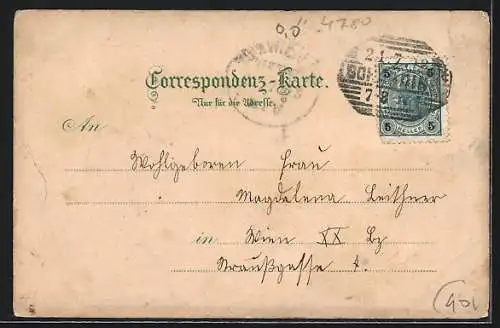 4780
21.7
7-8
5 5
HELLER
5 5
Correspondenz-Karte.
Nur für die Adresse.
An
Wohlgeboren Frau
Magdalena Leithner
in Wien XX Bz
Straußgasse 4.